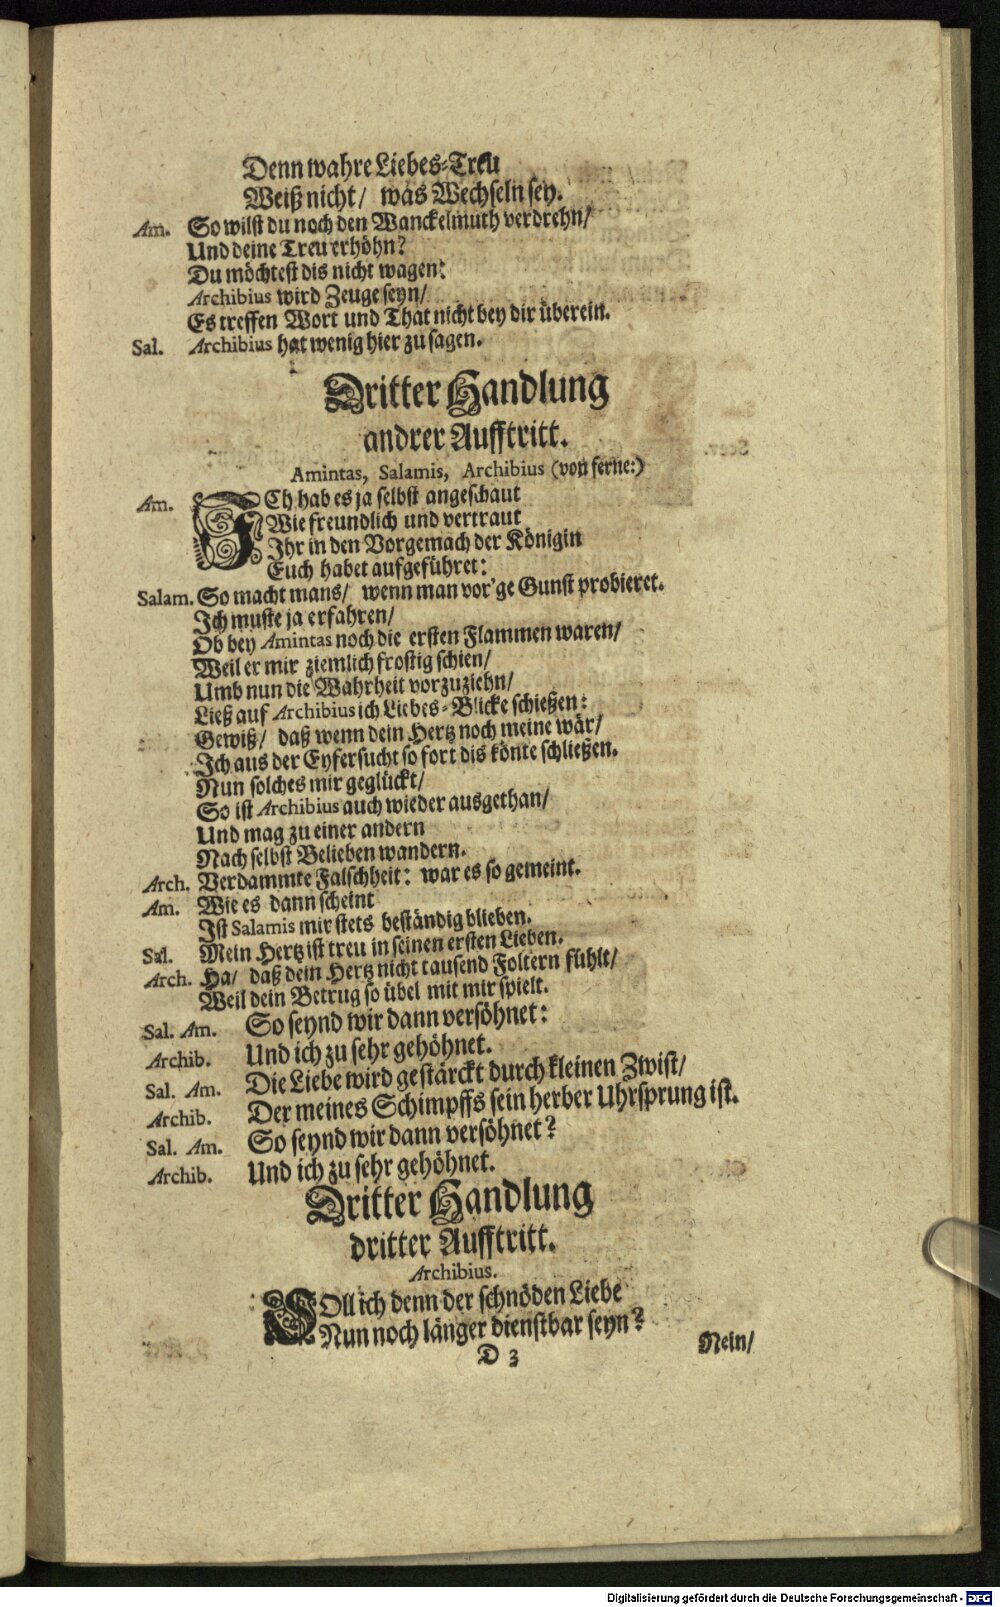 Denn wahre Liebes-Treu
Weiß nicht/ was Wechseln sey.
Am. So wilst du noch den Wanckelmuth verdrehn/
Und deine Treu erhöhn?
Du möchtest dis nicht wagen:
Archibius wird Zeuge seyn/
Es treffen Wort und That nicht bey dir überein.
Sal. Archibius hat wenig hier zu sagen.
Dritter Handlung
andrer Aufftritt.
Amintas, Salamis, Archibius (von ferne:)
Am. ICh hab es ja selbst angeschaut
Wie freundlich und vertraut
Ihr in den Vorgemach der Königin
Euch habet aufgeführet:
Salam. So macht mans/ wenn man vor'ge Gunst probieret.
Ich muste ja erfahren/
Ob bey Amintas noch die ersten Flammen waren/
Weil er mir ziemlich frostig schien/
Umb nun die Wahrheit vorzuziehn/
Ließ auf Archibius ich Liebes-Blicke schießen:
Gewiß/ daß wenn dein Hertz noch meine wär/
Ich aus der Eyfersucht so fort dis könte schließen.
Nun solches mir geglückt/
So ist Archibius auch wieder ausgethan/
Und mag zu einer andern
Nach selbst Belieben wandern.
Arch. Verdammte Falschheit: war es so gemeint.
Am. Wie es dann scheint
Ist Salamis mir stets beständig blieben.
Sal. Mein Hertz ist treu in seinen ersten Lieben.
Arch. Ha/ daß dein Hertz nicht tausend Foltern fühlt/
Weil dein Betrug so übel mit mir spielt.
Sal. Am. So seynd wir dann versöhnet:
Archib. Und ich zu sehr gehöhnet.
Sal. Am. Die Liebe wird gestärckt durch kleinen Zwist/
Archib. Der meines Schimpffs sein herber Uhrsprung ist.
Sal. Am. So seynd wir dann versöhnet?
Archib. Und ich zu sehr gehöhnet.
Dritter Handlung
dritter Aufftritt.
Archibius.
SOll ich denn der schnöden Liebe
Nun noch länger dienstbar seyn?
D 3 Nein/
Digitalisierung gefördert durch die Deutsche Forschungsgemeinschaft - DFG